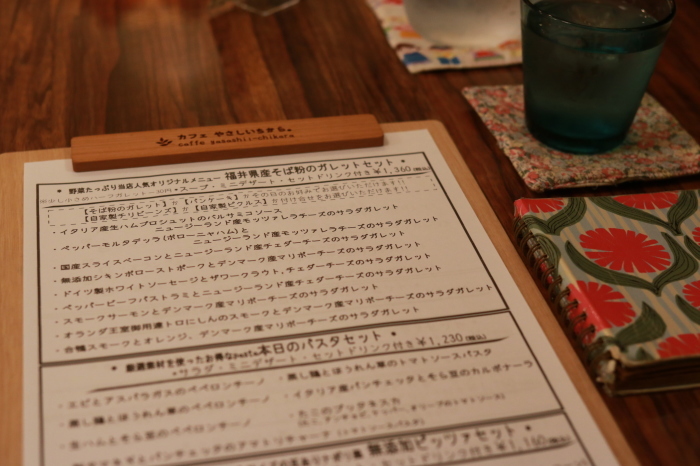 カフェ やさしいちから。
caffe yasashii-chikara
* 野菜たっぷり当店人気オリジナルメニュー 福井県産そば粉のガレットセット *
スープ・ミニデザート・セットドリンク付き¥1,360(税込)
【そば粉のガレット】か【パンケーキ】か今日のお好みでお選びいただけます!!
【自家製チリビーンズ】か【自家製ピクルス】か付け合せをお選びいただけます!!
・イタリア産生ハムプロシュットのバルサミコソース
ニュージーランド産モッツァレラチーズのサラダガレット
・ペッパーモルタデッラ(ボローニャハム)と
ニュージーランド産モッツァレラチーズのサラダガレット
・国産スライスベーコンとニュージーランド産チェダーチーズのサラダガレット
・無添加シキンボローストポークとデンマーク産マリボーチーズのサラダガレット
・ドイツ製ホワイトソーセージとザワークラウト,チェダーチーズのサラダガレット
・ペッパービーフパストラミとニュージーランド産チェダーチーズのサラダガレット
・スモークサーモンとデンマーク産マリボーチーズのサラダガレット
・オランダ王室御用達トロにしんのスモークとデンマーク産マリボーチーズのサラダガレット
・合鴨スモークとオレンジ,デンマーク産マリボーチーズのサラダガレット
* 厳選素材を使ったお得なpasta本日のパスタセット *
サラダ・ミニデザート・セットドリンク付き¥1,230(税込)
・エビとアスパラガスのペペロンチーノ
・蒸し鶏とほうれん草のトマトソースパスタ
・蒸し鶏とほうれん草のペペロンチーノ
・イタリア産パンチェッタとそら豆のカルボナーラ
・生ハムとそら豆のペペロンチーノ
・たこのプッタネスカ
とパンチェッタのアマトリチャーナ(トマトソースパスタ)
無添加ピッツァセット *
¥1,160(税込)